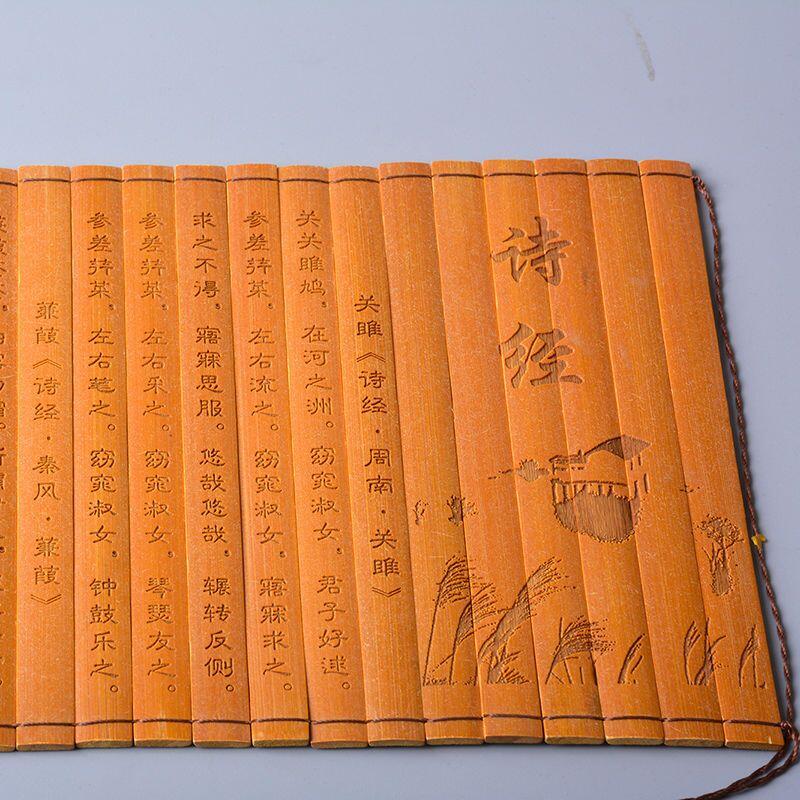 诗经
关雎《诗经·周南·关雎》
关关雎鸠。在河之洲。窈窕淑女。君子好逑。
参差荇菜。左右流之。窈窕淑女。寤寐求之。
求之不得。寤寐思服。悠哉悠哉。辗转反侧。
参差荇菜。左右采之。窈窕淑女。琴瑟友之。
参差荇菜。左右芼之。窈窕淑女。钟鼓乐之。
蒹葭《诗经·秦风·蒹葭》